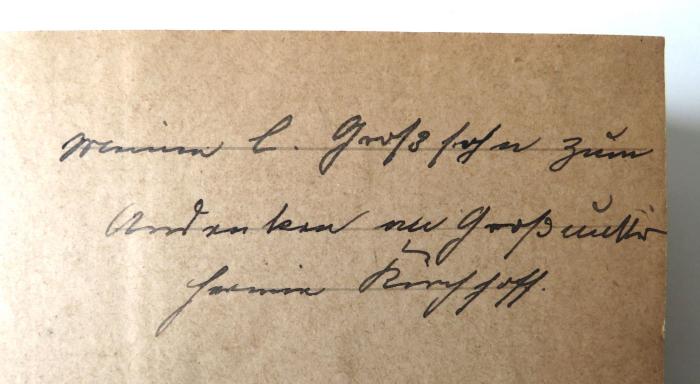 Meinem l. Großsohn zum
Andenken an Großmutter
Hermine Kirchhoff.